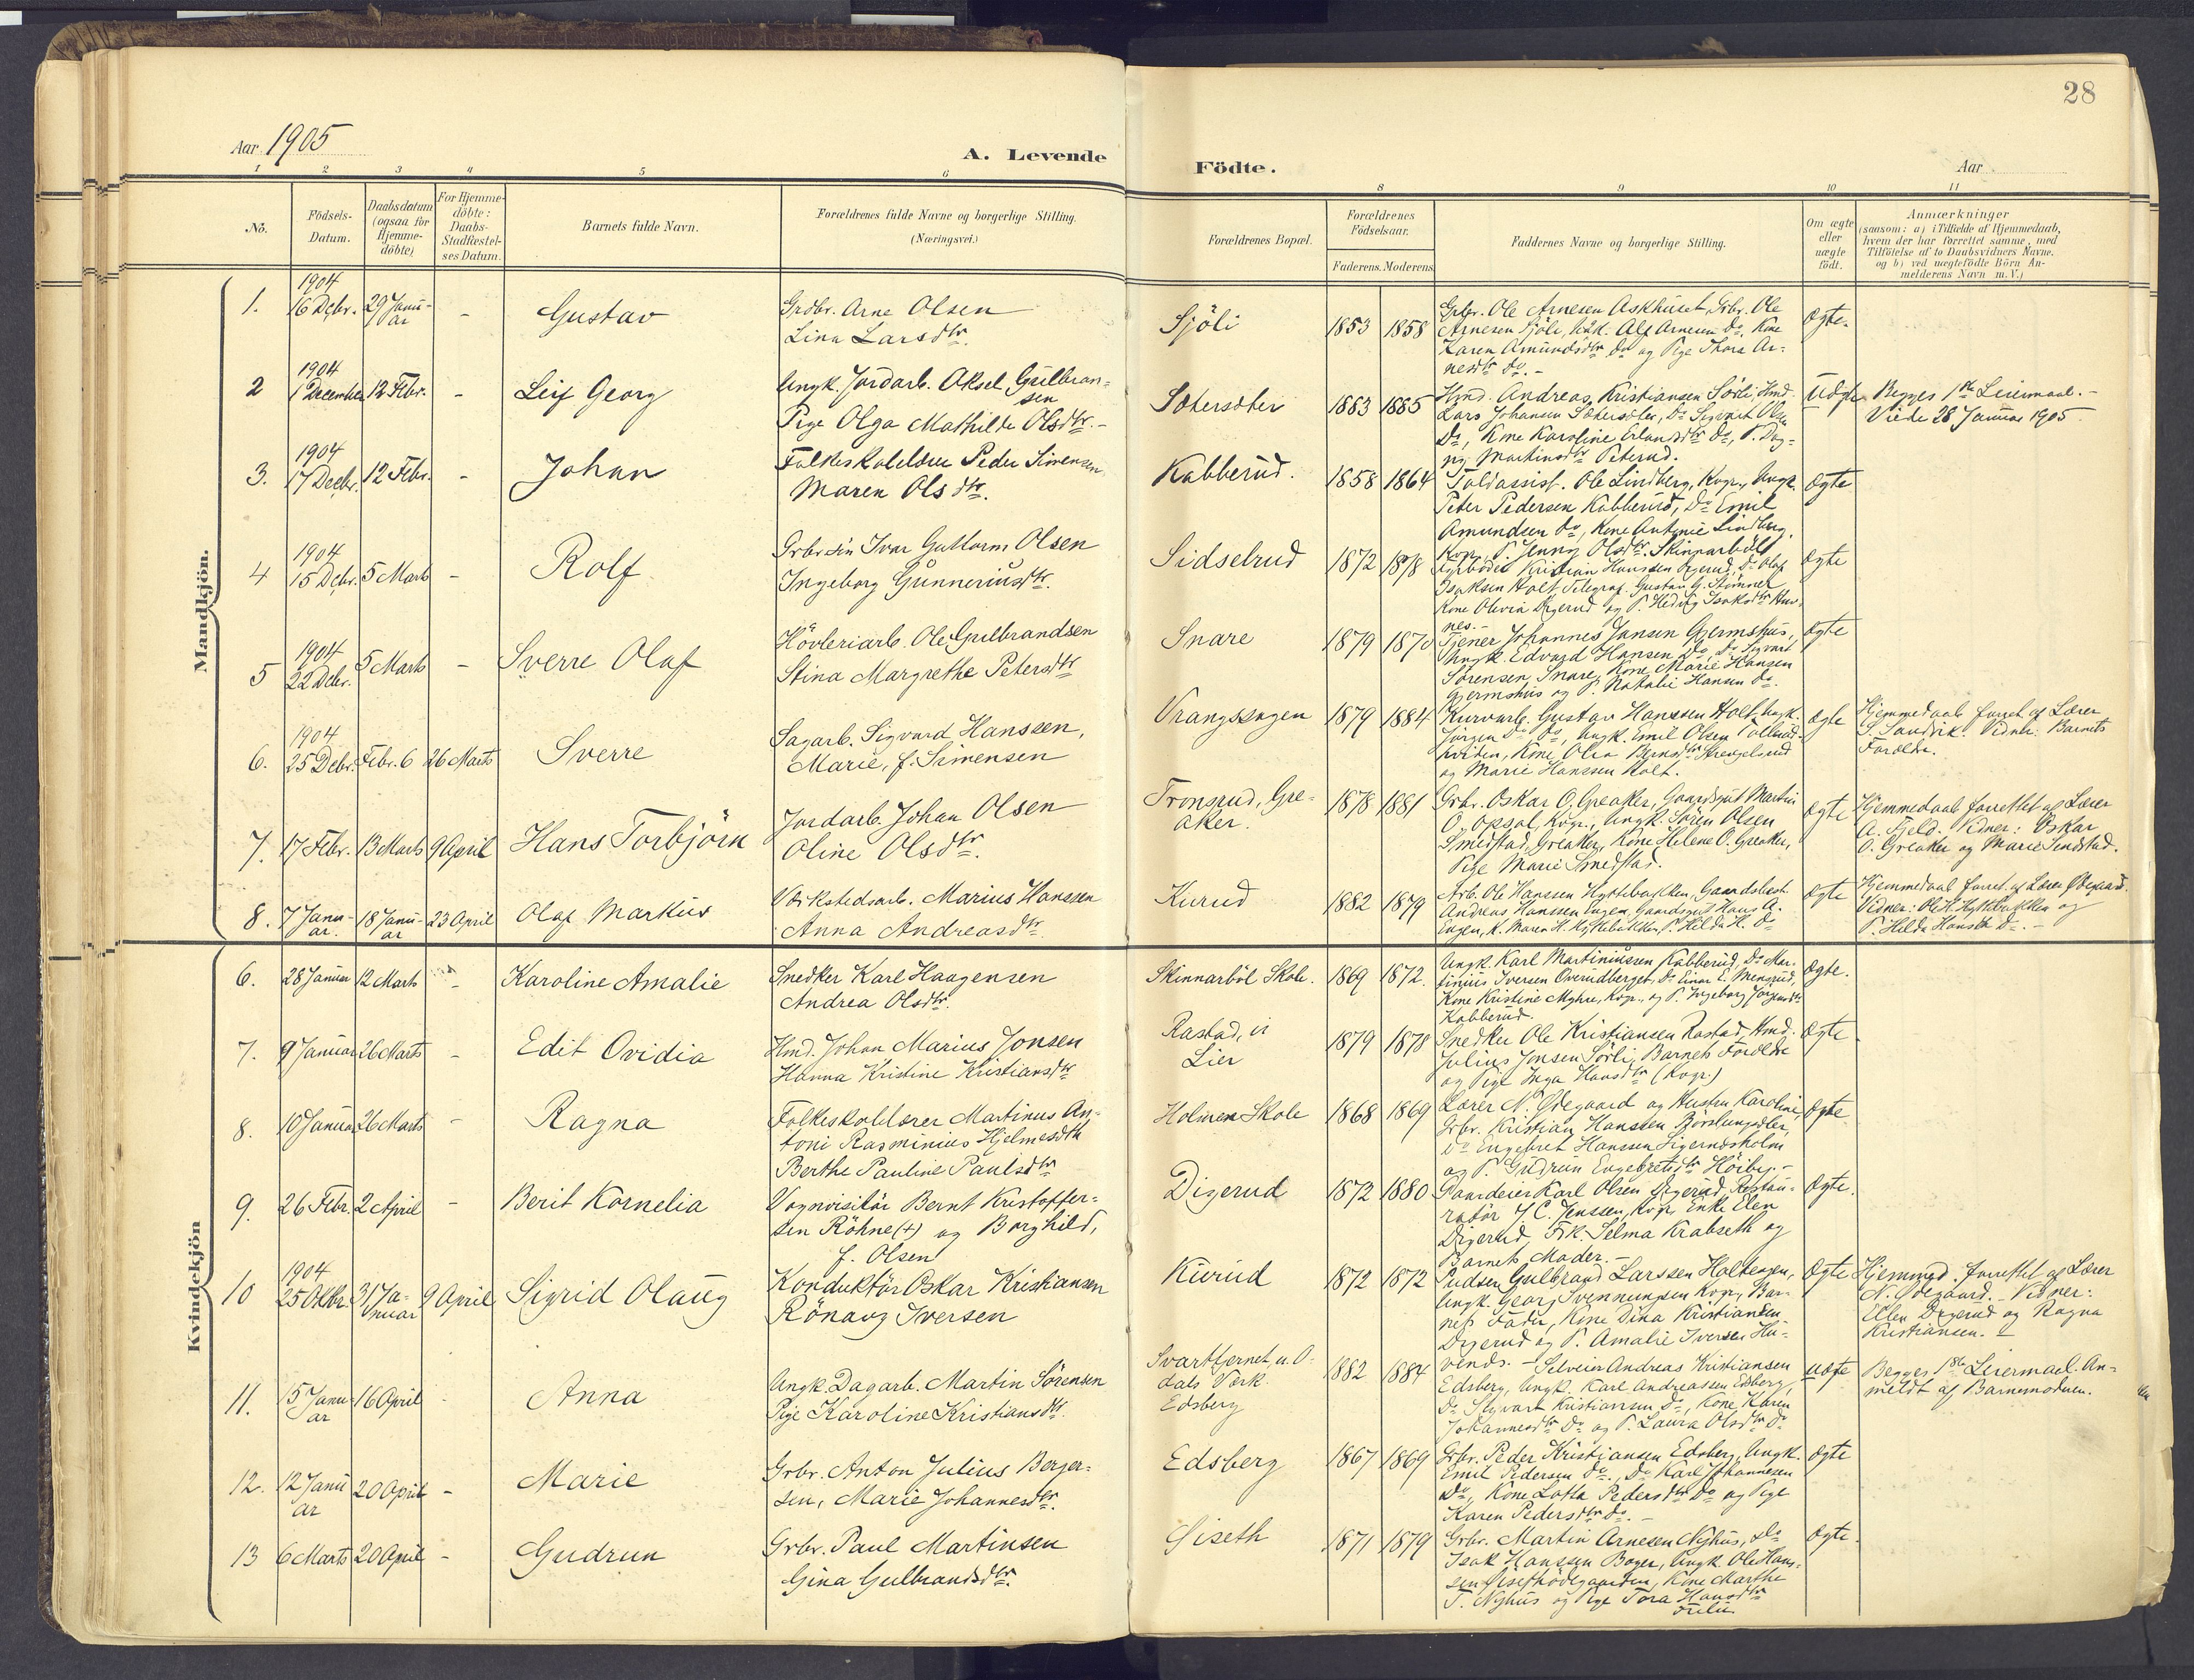 28
Aar 1905
A. Levende
Födte.
Aar
1 2 3 4 5 6 8 9 10 11
No.
Födsels-
Datum.
Daabsdatum
(ogsaa for
Hjemme-
döbte)
For Hjemme-
döbte:
Daabs-
Stadfæstel-
ses Datum.
Barnets fulde Navn.
Forældrenes fulde Navne og borgerlige Stilling.
(Næringsvei.)
Forældrenes Bopæl.
Forældrenes
Födselsaar.
Faderens. Moderens.
Faddernes Navne og borgerlige Stilling.
Om ægte
eller
uægte
födt.
Anmærkninger
(saasom: a) i Tilfælde af Hjemmedaab,
hvem der har forrettet samme, med
Tilföielse af to Daabsvidners Navne.
og b) ved uægtefödte Börn An-
melderens Navn m. V.)
Mandkjön.
1.
1904
16 Decbr.
29 Janu-
ar
-
Gustav
Grdbr. Arne Olsen
Lina Larsdtr.
Sjöli
1853 1858
Grbr. Ole Arnesen Askhuset, Grbr. Ole
Arnesen Sjöli, Alf Arnesen do, Kone
Karen Amundsdtr do og Pige Thora Ar-
nesdtr do. -
Ægte.
2
1904
1 December
12 Febr.
-
Leif Georg
Ungk. Jordarb. Aksel Gulbran-
sen
Pige Olga Mathilde Olsdtr. -
1883 1885
Hmd. Andreas Kristiansen Sörli, Hmd.
Lars Johansen Do Sigvart Olsen
Do, Kone Karoline Erlandsdtr Do, P. Dag-
ny Martinsdtr Peterud.
Uægte
Begges 1ste Leiermaal. -
Viede 28 Januar 1905
3.
1904
17 Decbr.
12 Febr.
-
Johan
Folkeskolelærer Peder Simensen
Maren Olsdtr.
Kabberud.
1858 1864
Toldassist. Ole Lindberg, Kvgr., Ungk.
Peter Pedersen Kabberud, Do Emil
Amundsen do, Kone Antonie Lindberg,
Kvgr., P. Jenny Olsdtr. Skinnarböl
Ægte
4
1904
15 Decbr.
5 Marts
-
Rolf
Grbrsön Ivar Guttorm Olsen
Ingeborg Gunneriusdtr.
Sidselrud
1872 1878
Fyrböder Kristian Hanssen Digerud, Do Olaf
Isaksen Holt, Telegraf. Gustav G. Stömner
Kone Olivia Digerud og P. Hedvig Isaksdtr Huv-
nes. -
Ægte
5
1904
22 Decbr.
5 Marts
-
Sverre Olaf
Hövleriarb. Ole Gulbrandsen
Stina Margrethe Petersdtr
Snare
1879 1870
Tjener Johannes Jansen Gjermshus,
Ungk. Edvard Hansen Do, Do Sigvart
Sörensen Snare, Kone Marie Hansen
Gjermshus og P. Natalie Hansen do.
Ægte
6.
1904
25 Debr.
Febr. 6
26 Marts
Sverre
Sagarb. Sigvard Hanssen,
Marie, f. Simensen
Vrangssagen
1879 1884
Kurvarb. Gustav Hanssen Holt, Ungk.
Jörgen Do Do, Ungk. Emil Olsen
Kone Olea Berntsdtr
og Marie Hanssen Holt.
Ægte
Hjemmedaab forret. af Lærer
S. Sandvik. Vidner: Barnets
Forældre.
7.
17 Febr.
13 Marts
9 April
Hans Torbjörn
Jordarb. Johan Olsen
Oline Olsdtr.
Tronsrud, Gre-
aker.
1878 1881
Grbr. Oskar O. Greaker, Gaardsgut Martin
O. Opsal, Kvgr., Ungk. Sören Olsen
Smedstad, Greaker, Kone Helene O. Greaker,
Pige Marie Smedstad.
Ægte
Hjemmedaab forrettet af Lærer
A. Fjeld. Vidner: Oskar
O. Greaker og Marie Smedstad.
8.
7 Janu-
ar.
18 Janu-
ar
23 April
Olaf Markus
Værkstedsarb. Marius Hanssen
Anna Andreasdtr.
Kurud
1882 1879
Arb. Ole Hanssen Hyttebakken, Gaardsbest.
Andreas Hanssen Engen, Gaardsgut Hans A.
Engen, K. Maren H. Hyttebakken, P. Hilda H. Do
Ægte
Hjemmedaab forret. af Lærer Ødegaard.
Vidner: Ole H. Hyttebakken og
P. Hilda Hansdtr Do. -
Kvindekjön
6.
28 Januar
12 Marts
-
Karoline Amalie
Snedker Karl Haagensen
Andrea Olsdtr.
Skinnarböl Skole.
1869 1872.
Ungk. Karl Martiniussen Kabberud, Do Mar-
tinius Iversen Overudberget, Do Einar E. Mensrud,
Kone Kristine Myhre, Kvgr., og P. Ingeborg Jörgensdtr
Kabberud.
Ægte.
7.
9 Januar
26 Marts
-
Edit Ovidia
Hmd. Johan Marius Jonsen
Hanna Kristine Kristiansdtr
Rastad, i
Lier
1879 1878
Snedker Ole Kristiansen Rastad, Hmd.
Julius Jonsen Sörli, Barnets Forældre
og Pige Inga Hansdtr (Kvgr.)
Ægte
8.
10 Januar
26 Marts
-
Ragna
Folkeskolelærer Martinus An-
toni Rasminius Hjelmeseth
Berthe Pauline Paulsdtr
Holmen Skole
1868 1869
Lærer N. Ødegaard og Hustru Karoline,
Grbr. Kristian Hanssen
Do Engebret Hanssen Sigernessholm
og P. Gudrun Engebretsdtr Höiby. -
Ægte
9.
26 Febr.
2 April
-
Berit Kornelia
Vognvisitör Bernt Kristoffer-
sen Röhne (+) og Borghild,
f. Olsen
Digerud
1872 1880
Gaardeier Karl Olsen Digerud, Restau-
ratör J. C. Jenssen, Kvgr, Enke Elen
Digerud, Frk. Selma Krabseth og
Barnets Moder. -
Ægte.
10
1904
25 Oktbr.
31 Ja-
nuar
9 April
Sigrid Olaug
Konduktör Oskar Kristiansen
Rönaug Iversen
Kurud
1872 1872
Pudser Gulbrand Larssen Holteengen,
Ungk. Georg Svennungsen Kvgr, Bar-
nets Fader, Kone Dina Kristiansen
Digerud og P. Amalie Iversen Hu-
Ægte
Hjemmed. forrettet af Lærer
N. Ødegaard. - Vidner:
Ellen Digerud og Ragna
Kristiansen.
11.
15 Janu-
ar
16 April
-
Anna
Ungk. Dagarb. Martin Sörensen
Pige Karoline Kristiansdtr.
Svarttjernet, u. O-
dals Værk.
Edsberg
1882 1884
Selveier Andreas Kristiansen
Edsberg, Ungk. Karl Andreassen Edsberg,
Do Sigvart Kristiansen Do, Kone Karen
Johannesdtr Do og P. Laura Olsdtr Do
uægte
Begges 1ste Leiermaal. An-
meldt af Barnemoderen.
12.
12 Janu
ar
20 April
-
Marie
Grbr. Anton Julius Berger-
sen, Marie Johannesdtr.
Edsberg
1867 1869
Grbr. Peder Kristiansen Edsberg, Ungk.
Emil Pedersen Do., Do Karl Johannesen
Do, Kone Lotta Pedersdtr Do og Pige
Karen Pedersdtr Do. -
Ægte
13
6 Marts
20 April
-
Gudrun
Grbr. Paul Martinsen
Gina Gulbrandsdtr.
Siseth
1871 1879
Grbr. Martin Arnesen Nyhus, Do
Isak Hanssen Boger, Ungk. Ole Hans-
sen Kone Marthe
T. Nyhus og Pige Tora Hansdtr
Ægte.